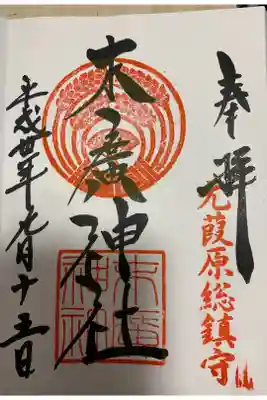 奉拝
元葭原総鎮守
末廣神社
末廣
神社
平成卅年九月十五日